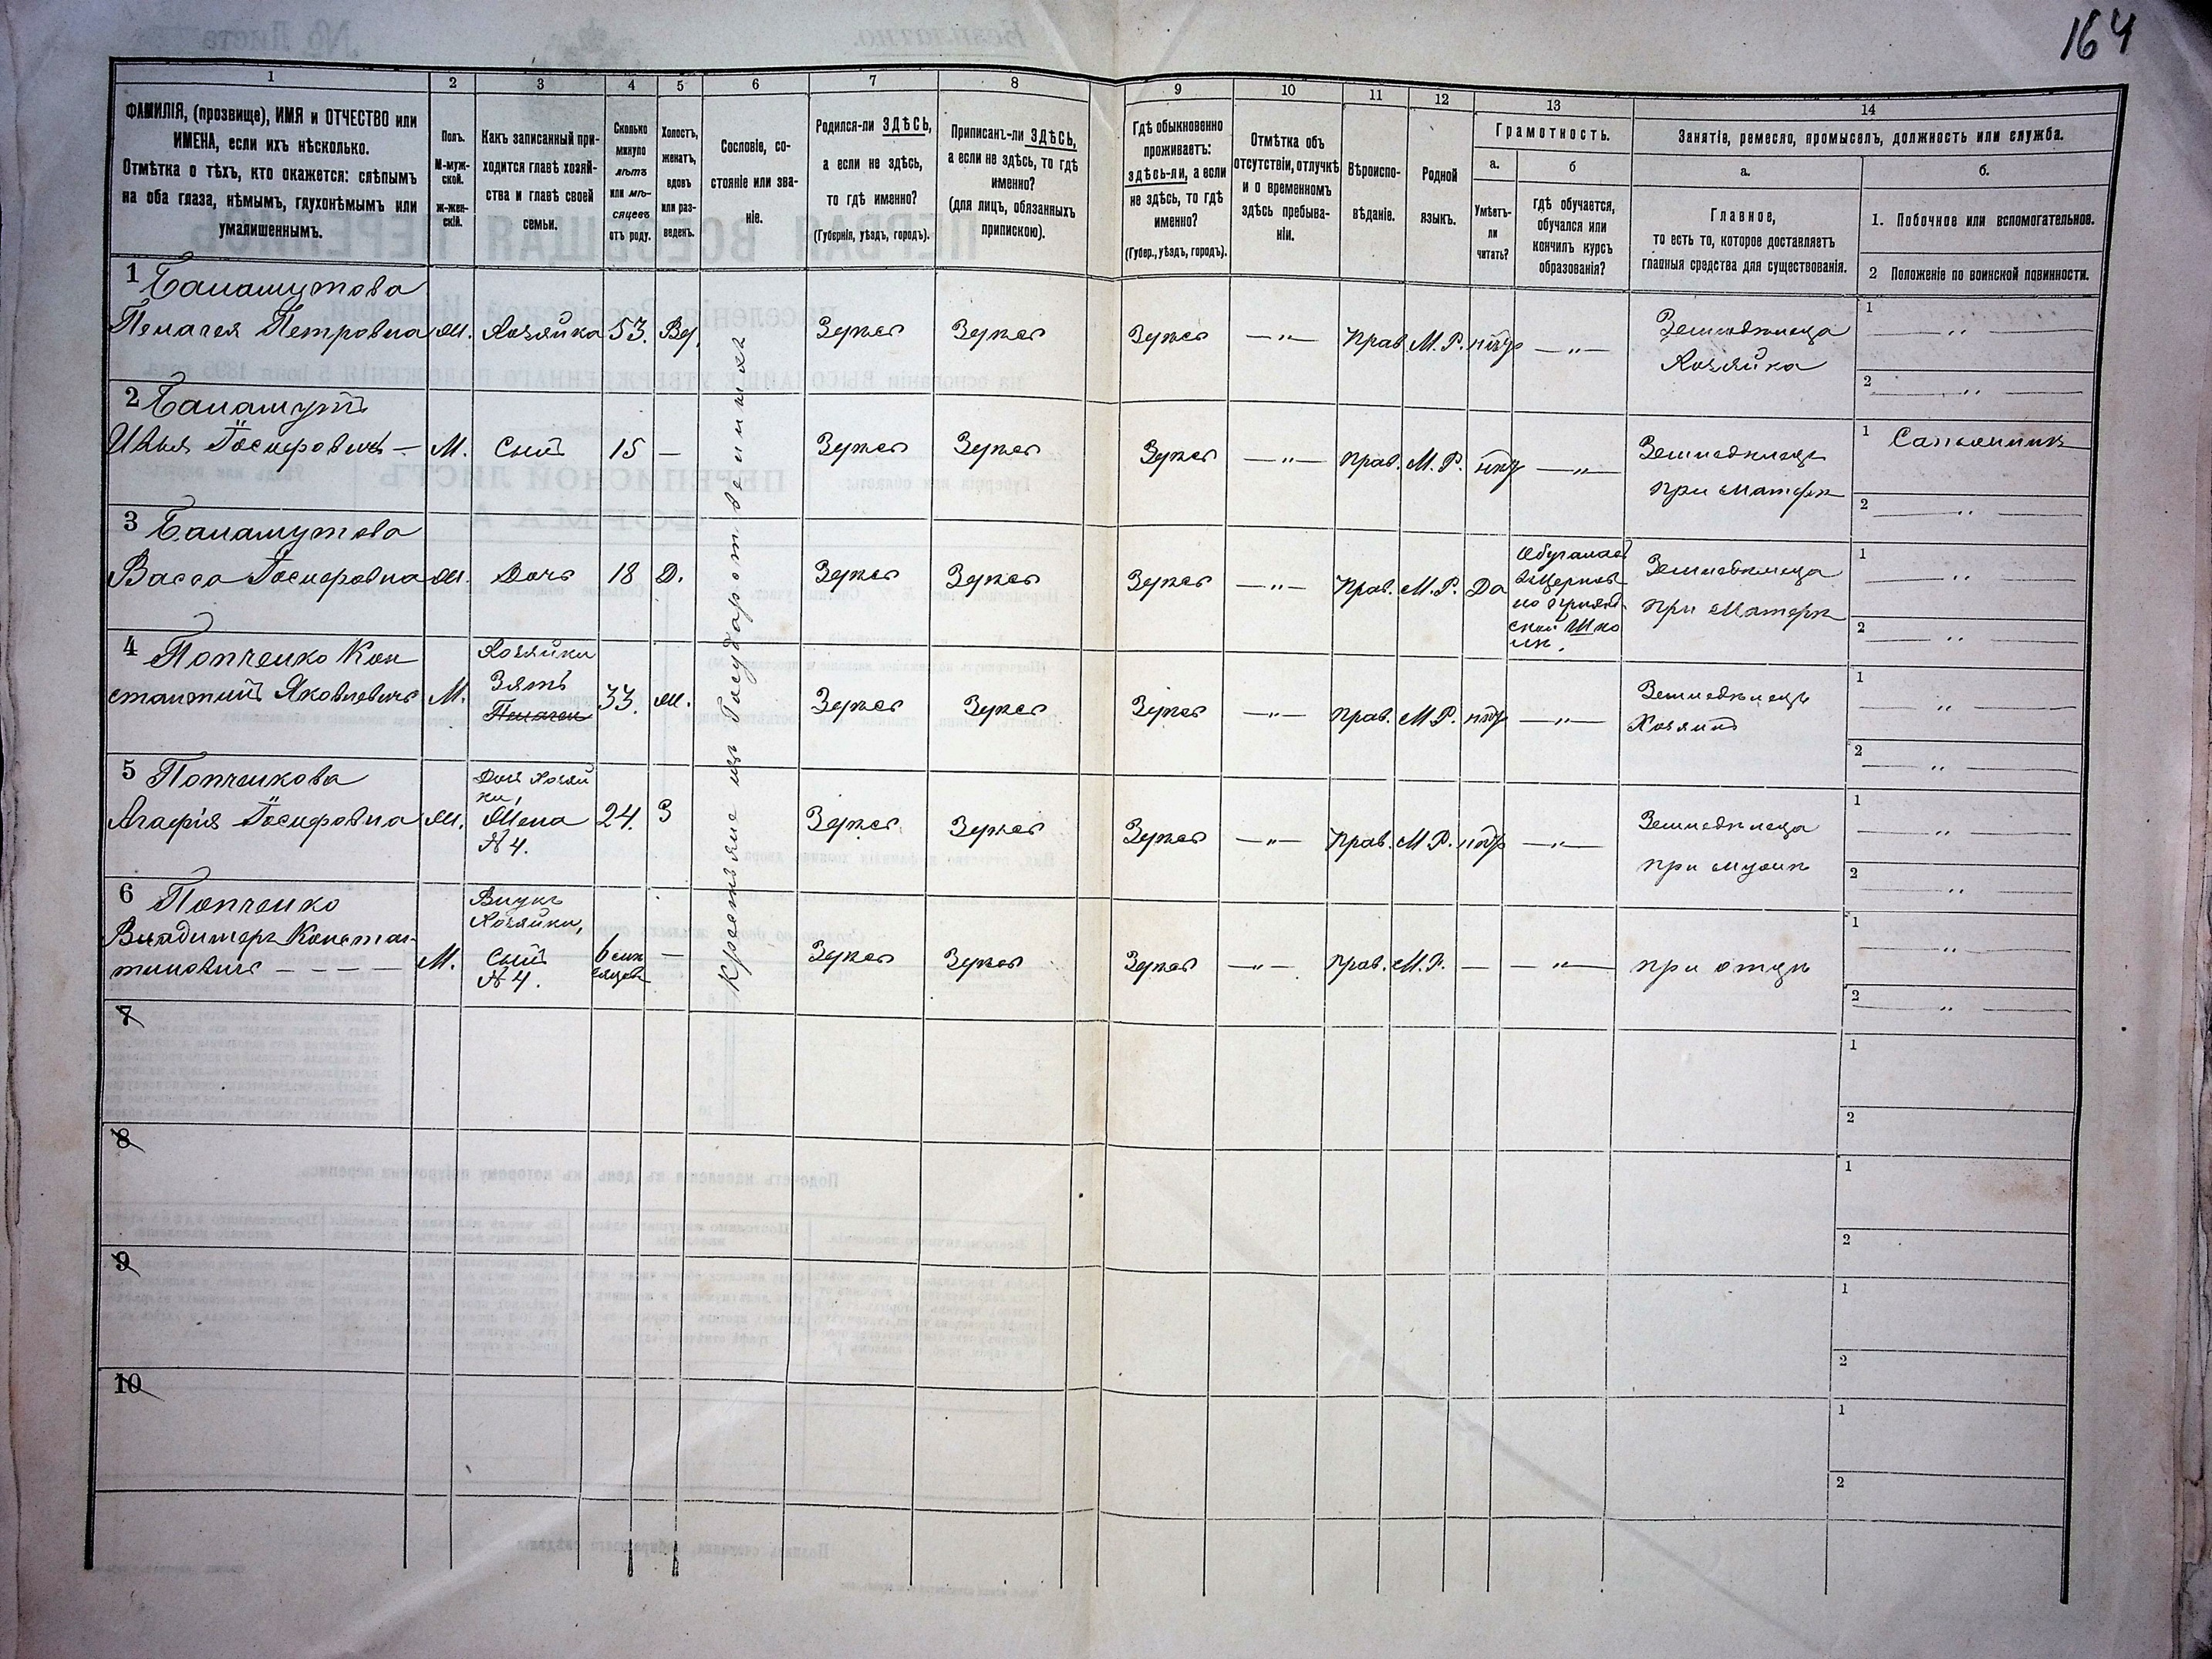 164
1 2 3 4 5 6 7 8 9 10 11 12 13 14
ФАМИЛІЯ, (прозвище), ИМЯ и ОТЧЕСТВО или
ИМЕНА, если ихъ нѣсколько.
Отмѣтка о тѣхъ, кто окажется: слѣпымъ
на оба глаза, нѣмымъ, глухонѣмымъ или
умалишеннымъ.
Полъ.
М-муж-
ской.
ж-жен-
скій.
Какъ записанный при-
ходится главѣ хозяй-
ства и главѣ своей
семьи.
Сколько
минуло
лѣтъ
или мѣ-
сяцевъ
отъ роду.
Холостъ,
женатъ,
вдовъ
или раз-
веденъ.
Сословіе, со-
стояніе или зва-
ніе.
Родился-ли ЗДѢСЬ,
а если не здѣсь,
то гдѣ именно?
(Губернія, уѣздъ, городъ).
Приписанъ-ли ЗДѢСЬ,
а если не здѣсь, то гдѣ
именно?
(для лицъ, обязанныхъ
припискою).
Гдѣ обыкновенно
проживаетъ:
здѣсь-ли, а если
не здѣсь, то гдѣ
именно?
(Губер., уѣздъ, городъ).
Отмѣтка объ
отсутствіи, отлучкѣ
и о временномъ
здѣсь пребыва-
ніи.
Вѣроиспо-
вѣданіе.
Родной
языкъ.
Грамотность.
а.
Умѣетъ-
ли
читать?
б
гдѣ обучается,
обучался или
кончилъ курсъ
образованія?
Занятіе, ремесло, промыселъ, должность или служба.
а.
Главное,
то есть то, которое доставляетъ
главныя средства для существованія.
б.
1. Побочное или вспомогательное.
2 Положеніе по воинской повинности.
Крестьяне изъ Государственныхъ
1 Баламутова
Пелагея Петровна Ж. Хозяйка 53. Вд. Здѣсь Здѣсь Здѣсь —„— Прав. М. Р. нѣтъ —„—
Земледѣлица
Хозяйка
1 — „ —
2 — „ —
2 Баламутъ
Илья Іосифовичъ — М. Сынъ 15 — Здѣсь Здѣсь Здѣсь —„— Прав. М. Р. нѣтъ —„—
Земледѣлецъ
при матери
1 Сапожникъ
2 — „ —
3 Баламутова
Васса Іосифовна Ж. Дочь 18 Д. Здѣсь Здѣсь Здѣсь —„— Прав. М. Р. Да
Обучалась
въ Церков
но приход
ской Шко
лѣ.
Земледѣлица
при Матери
1 — „ —
2 — „ —
4 Попченко Кон
стантинъ Яковлевичъ М.
Хозяйки
Зять
Пелагеи
33. Ж. Здѣсь Здѣсь Здѣсь —„— Прав. М. Р. нѣтъ —„—
Земледѣлецъ
Хозяинъ
1 — „ —
2 — „ —
5 Попченкова
Агафія Іосифовна Ж.
Дочь Хозяй
ки,
Жена
№ 4.
24. З Здѣсь Здѣсь Здѣсь —„— Прав. М. Р. нѣтъ —„—
Земледѣлица
при мужѣ
1 — „ —
2 — „ —
6 Попченко
Владимеръ Констан-
тиновичъ — — — — М.
Внукъ
Хозяйки,
Сынъ
№ 4.
6 мѣ
сяцевъ
— Здѣсь Здѣсь Здѣсь —„— Прав. М. Р. — —„— при отцѣ
1 — „ —
2 — „ —
7
1
2
8
1
2
9
1
2
10
1
2